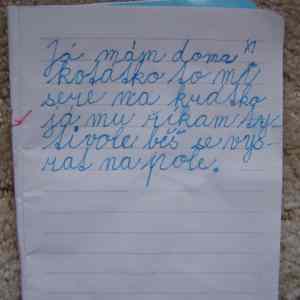 Já mám doma
koťátko to mi
sere na krátko
já mu říkám ty
ti vole běš se vys-
rat na pole.